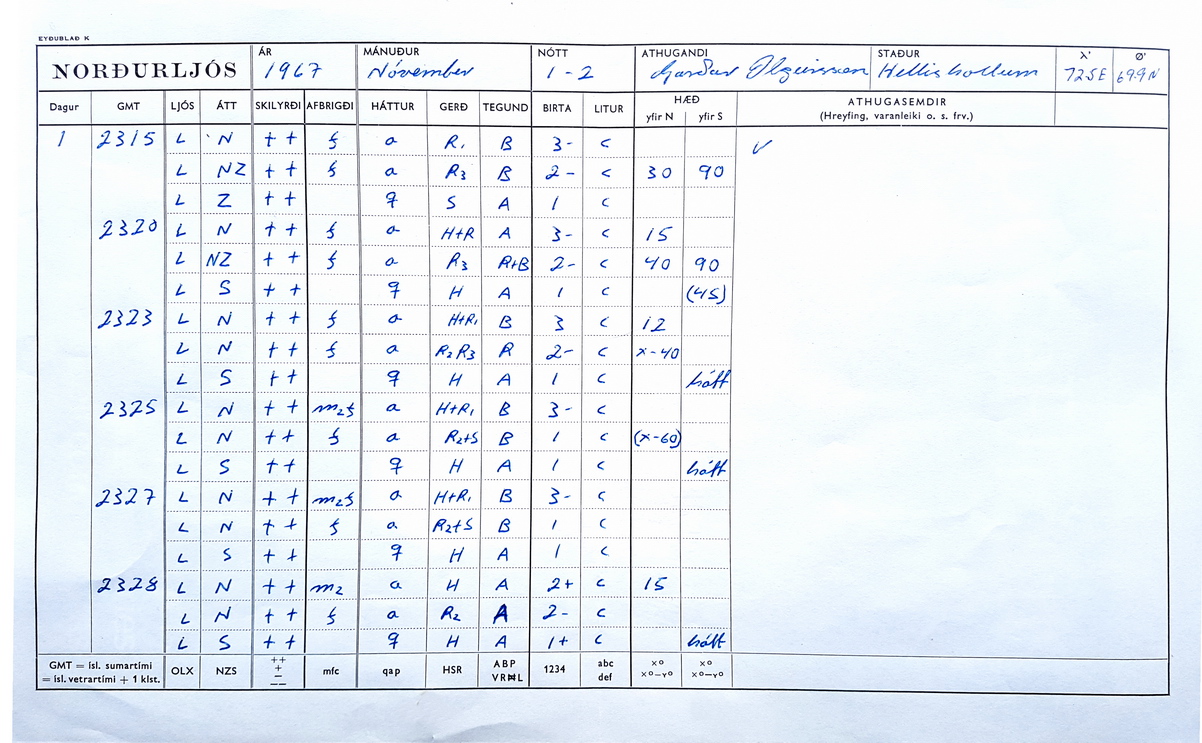 EYÐUBLAÐ K
NORÐURLJÓS ÁR 1967 MÁNUÐUR Nóvember NÓTT 1-2 ATHUGANDI Garðar STAÐUR λ' 72.5E Ø' 69.9N
Dagur GMT LJÓS ÁTT SKILYRÐI AFBRIGÐI HÁTTUR GERÐ TEGUND BIRTA LITUR HÆÐ yfir N yfir S ATHUGASEMDIR (Hreyfing, varanleiki o. s. frv.)
1 2315 L N ++ f a R1 B 3- c ✓
L NZ ++ f a R3 B 2- c 30 90
L Z ++ q S A 1 c
2320 L N ++ f a H+R A 3- c 15
L NZ ++ f a R3 R+B 2- c 40 90
L S ++ q H A 1 c (45)
2323 L N ++ f a H+R1 B 3 c 12
L N ++ f a R2R3 R 2- c x-40
L S ++ q H A 1 c hátt
2325 L N ++ m2f a H+R1 B 3- c
L N ++ f a R2+S B 1 c (x-60)
L S ++ q H A 1 c hátt
2327 L N ++ m2f a H+R1 B 3- c
L N ++ f a R2+S B 1 c
L S ++ q H A 1 c
2328 L N ++ m2 a H A 2+ c 15
L N ++ f a R2 A 2- c
L S ++ q H A 1+ c hátt
GMT = ísl. sumartími OLX NZS ++ + − −− mfc qap HSR ABP 1234 abc x° x°
= ísl. vetrartími + 1 klst. VRNL def x°–Y° x°–Y°